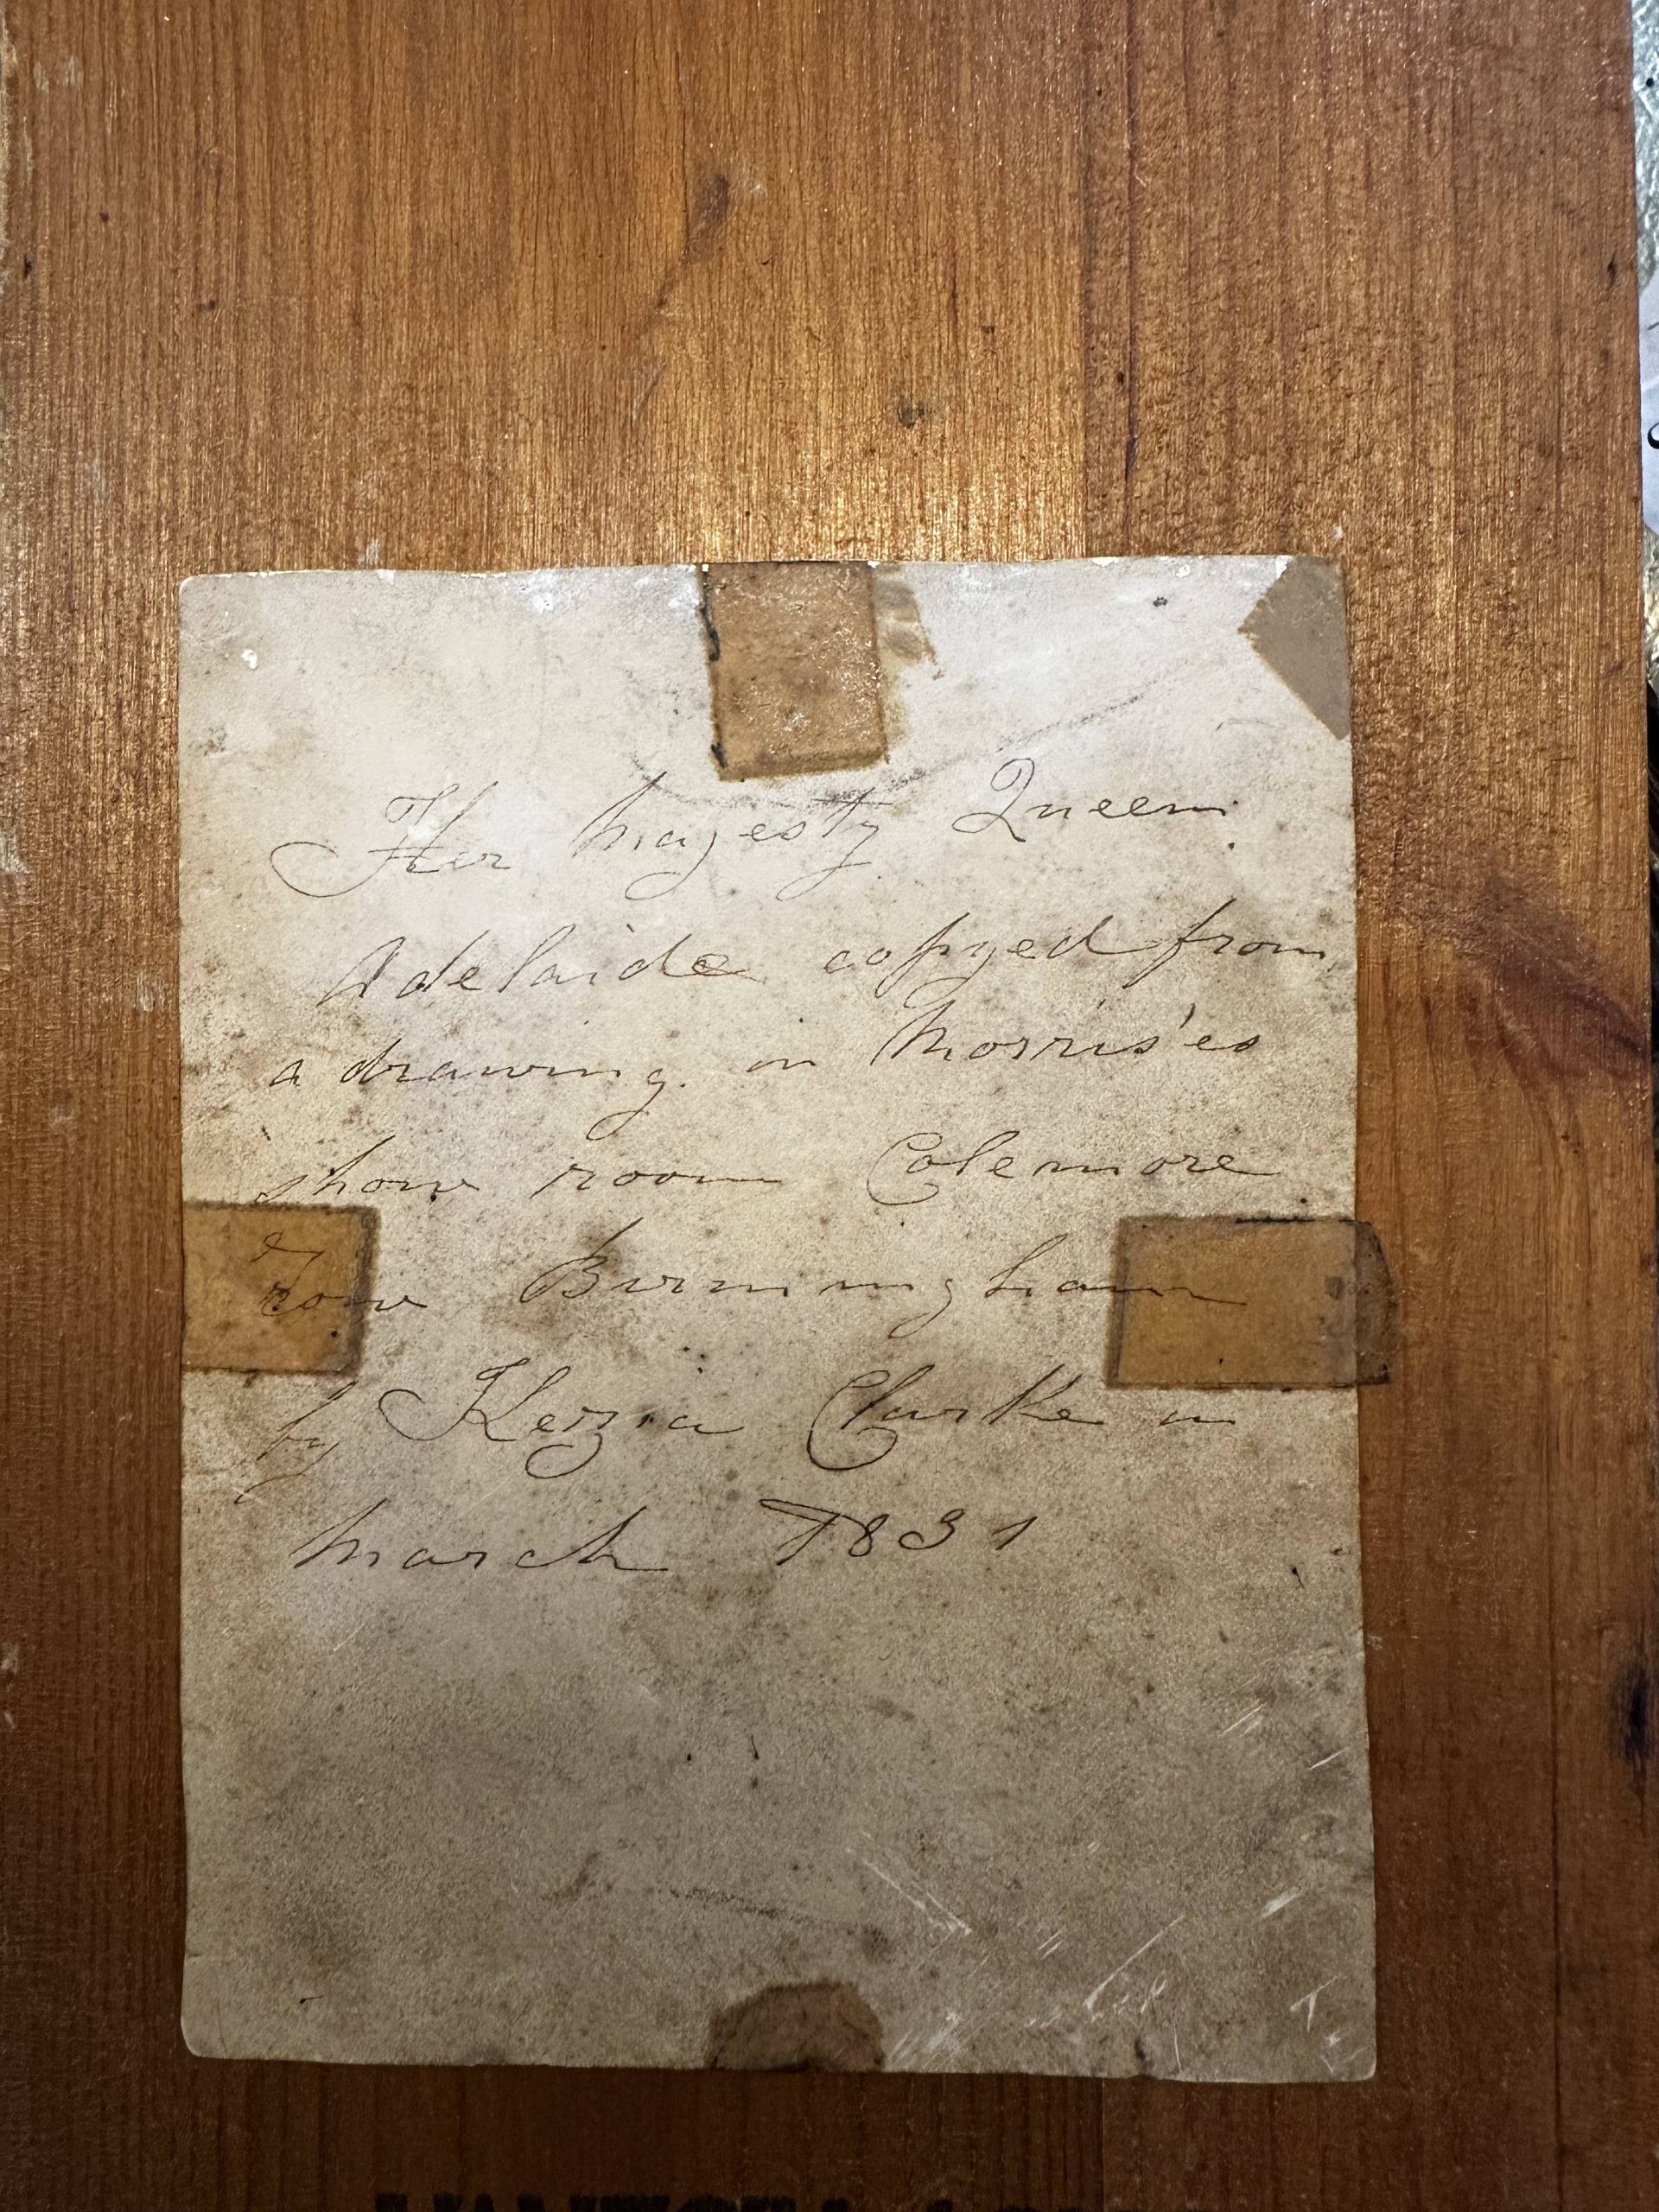 Her Majesty Queen
Adelaide copyed from
a drawing in Morris'es
show room Colemore
row Birmingham
by Kezia Clarke in
March 1831